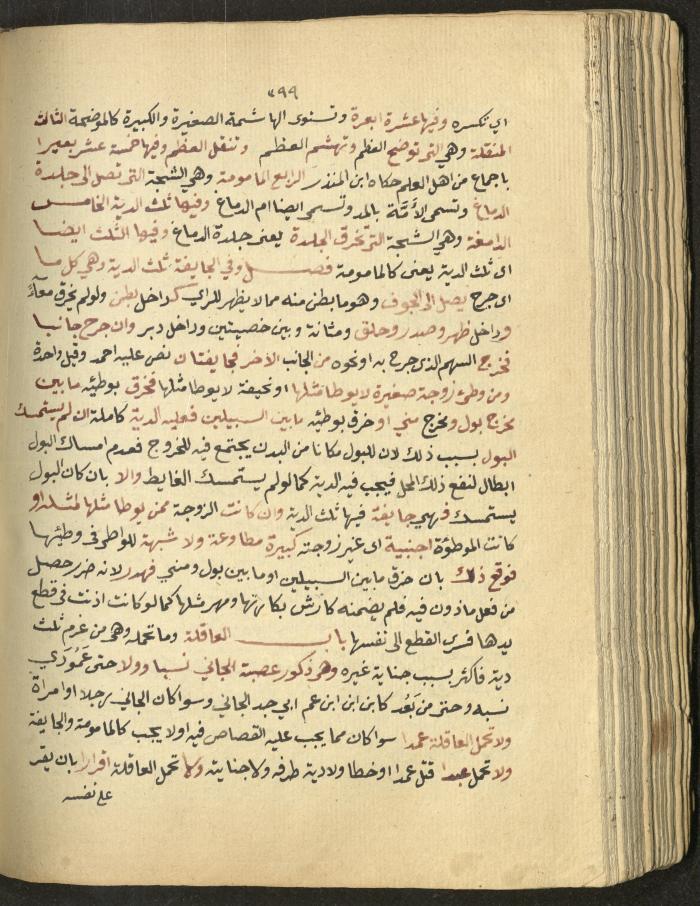 ٢٩٩
اي تكسره وفيها عشرة ابعرة وتستوى الهاشمة الصغيرة والكبيرة كالموضحة الثالث
المنقلة وهي التي توضح العظم وتهشم العظم وتنقل العظم وفيها خمسة عشر بعيرا
باجماع من اهل العلم حكاه ابن المنذر الرابع المامومة وهي الشجة التي تصل الى جلدة
الدماغ وتسمى الأمّة بالمد وتسمى ايضا ام الدماغ وفيها ثلث الدية الخامس
الدامغة وهي الشجة التي تخرق الجلدة يعنى جلدة الدماغ وفيها الثلث ايضا
اى ثلث الدية يعنى كالمامومة فصل وفي الجايفة ثلث الدية وهي كل ما
اى جرح يصل الى الجوف وهو ما بطن منه مما لا يظهر للراي كداخل بطن ولو لم يخرق معآءً
وداخل ظهر وصدر وحلق ومثانة وبين خصيتين وداخل دبر وان جرح جانبا
فخرج السهم الذى جرح به او نحوه من الجانب الاخر فجايفتان نص عليه احمد وقيل واحدة
ومن وطئ زوجة صغيرة لا يوطا مثلها او نحيفة لا يوطا مثلها فخرق بوطئه ما بين
مخرج بول ومخرج مني او خرق بوطئه ما بين السبيلين فعليه الدية كاملة ان لم يستمسك
البول بسبب ذلك لان للبول مكانا من البدن يجتمع فيه للخروج فعدم امساك البول
ابطال لنفع ذلك المحل فيجب فيه الدية كما لو لم يستمسك الغايط والا بان كان البول
يستمسك فهي جايفة فيها ثلث الدية وان كانت الزوجة ممن يوطا مثلها لمثله او
كانت الموطؤة اجنبية اى غير زوجته كبيرة مطاوعة ولا شبهة للواطى في وطئها
فوقع ذلك بان خرق ما بين السبيلين او ما بين بول ومني فهدر لانه ضرر حصل
من فعل ماذون فيه فلم يضمنه كارش بكارتها ومهر مثلها كما لو كانت اذنت في قطع
يدها فسرى القطع الى نفسها باب العاقلة وما تحمله وهي من غرم ثلث
دية فاكثر بسبب جناية غيره وهي ذكور عصبة الجاني نسبا وولا حتى عَمُودَي
نسبه وحتى من بَعُد كابن ابن ابن عم ابي جد الجاني وسوا كان الجاني رجلا او امراة
ولا تحمل العاقلة عمدا سوا كان مما يجب عليه القصاص فيه او لا يجب كالمامومة والجايفة
ولا تحمل عبدا قتل عمدا او خطا ولا دية طرفه ولا جنايته ولا تحمل العاقلة اقرارا بان يقر
على نفسه